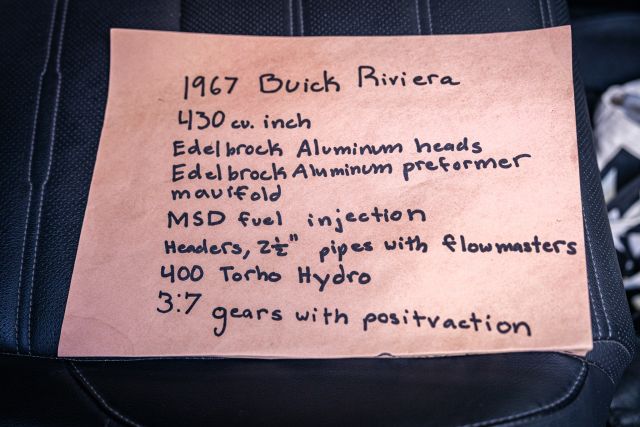 1967 Buick Riviera
430 cu. inch
Edelbrock Aluminum heads
Edelbrock Aluminum preformer
mauifold
MSD fuel injection
Headers, 2½" pipes with flowmasters
400 Torho Hydro
3:7 gears with positraction